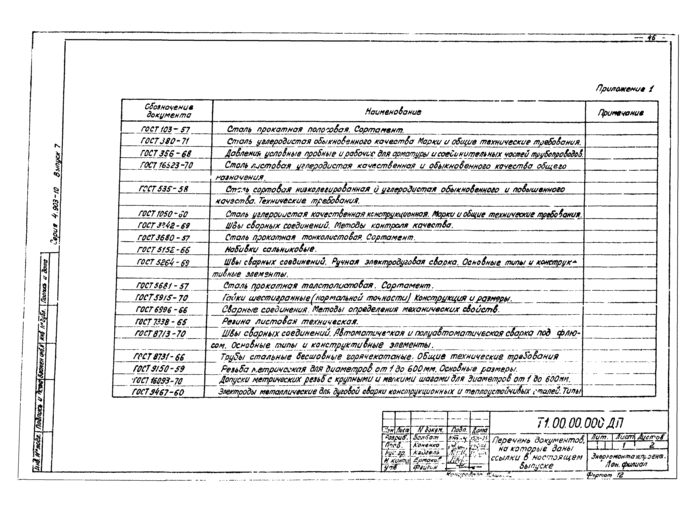 46
Приложение 1
Серия 4.903-10 Выпуск 7
Обозначение документа Наименование Примечание
ГОСТ 103-57 Сталь прокатная полосовая. Сортамент.
ГОСТ 380-71 Сталь углеродистая обыкновенного качества Марки и общие технические требования.
ГОСТ 356-68 Давления условные пробные и рабочие для арматуры и соединительных частей трубопроводов.
ГОСТ 16523-70 Сталь листовая углеродистая качественная и обыкновенного качества общего
назначения.
ГОСТ 535-58 Сталь сортовая низколегированная и углеродистая обыкновенного и повышенного
качества. Технические требования.
ГОСТ 1050-60 Сталь углеродистая качественная конструкционная. Марки и общие технические требования.
ГОСТ 3242-69 Швы сварных соединений. Методы контроля качества.
ГОСТ 3680-57 Сталь прокатная тонколистовая. Сортамент.
ГОСТ 5152-66 Набивки сальниковые.
ГОСТ 5264-69 Швы сварных соединений. Ручная электродуговая сварка. Основные типы и конструк-
тивные элементы.
ГОСТ 5681-57 Сталь прокатная толстолистовая. Сортамент.
ГОСТ 5915-70 Гайки шестигранные (нормальной точности) Конструкция и размеры.
ГОСТ 6996-66 Сварные соединения. Методы определения механических свойств.
ГОСТ 7338-65 Резина листовая техническая.
ГОСТ 8713-70 Швы сварных соединений. Автоматическая и полуавтоматическая сварка под флю-
сом. Основные типы и конструктивные элементы.
ГОСТ 8731-66 Трубы стальные бесшовные горячекатаные. Общие технические требования
ГОСТ 9150-59 Резьба метрическая для диаметров от 1 до 600мм. Основные размеры.
ГОСТ 16093-70 Допуски метрических резьб с крупными и мелкими шагами для диаметров от 1 до 600мм.
ГОСТ 9467-60 Электроды металлические для дуговой сварки конструкционных и теплоустойчивых сталей. Типы
Т1.00.00.000 ДП
Изм. Лист N докум. Подп. Дата
Разраб.
Пров.
Н. контр.
Утв.
Перечень документов,
на которые даны
ссылки в настоящем
выпуске
Лит. Лист Листов
1 2
Лен. филиал
Формат 12
Подпись и дата